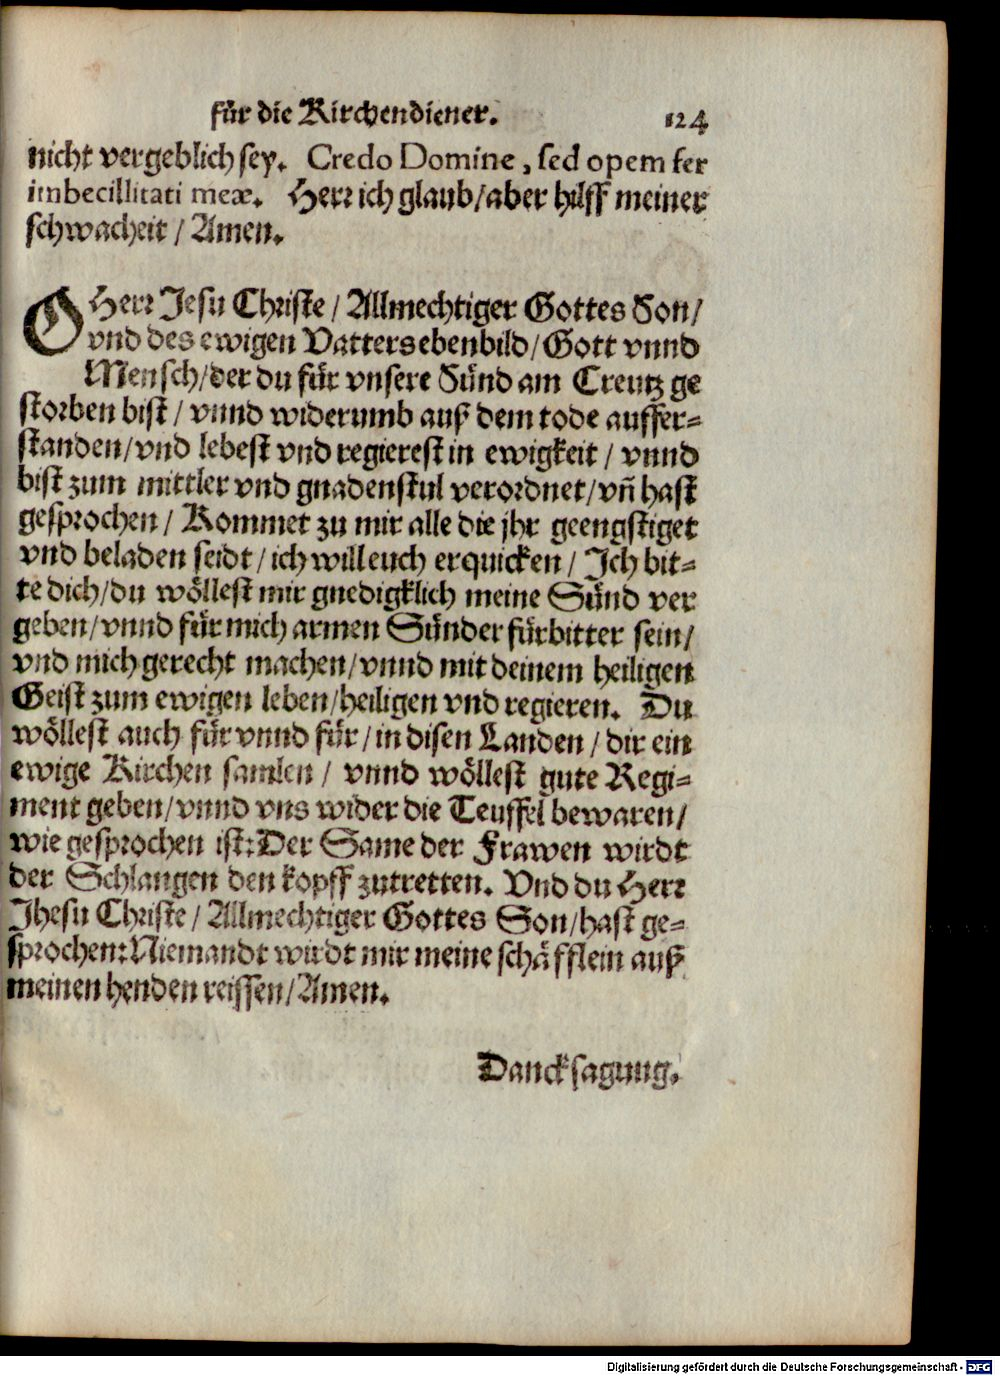 für die Kirchendiener. 124
nicht vergeblich sey. Credo Domine, sed opem fer
imbecillitati meæ. Herr ich glaub/aber hilff meiner
schwacheit / Amen.
O Herr Jesu Christe / Allmechtiger Gottes Son/
vnd des ewigen Vatters ebenbild/ Gott vnnd
Mensch/der du für vnsere Sünd am Creutz ge
storben bist / vnnd widerumb auß dem tode auffer-
standen/vnd lebest vnd regierest in ewigkeit / vnnd
bist zum mittler vnd gnadenstul verordnet/vñ hast
gesprochen / Kommet zu mir alle die jhr geengstiget
vnd beladen seidt / ich will euch erquicken / Ich bit-
te dich/du wöllest mir gnedigklich meine Sünd ver
geben/vnnd für mich armen Sünder fürbitter sein/
vnd mich gerecht machen/vnnd mit deinem heiligen
Geist zum ewigen leben/heiligen vnd regieren. Du
wöllest auch für vnnd für / in disen Landen / dir ein
ewige Kirchen samlen / vnnd wöllest gute Regi-
ment geben/vnnd vns wider die Teuffel bewaren/
wie gesprochen ist: Der Same der Frawen wirdt
der Schlangen den kopff zutretten. Vnd du Herr
Jhesu Christe / Allmechtiger Gottes Son/hast ge-
sprochen: Niemandt wirdt mir meine schäfflein auß
meinen henden reissen/Amen.
Dancksagung.
Digitalisierung gefördert durch die Deutsche Forschungsgemeinschaft - DFG